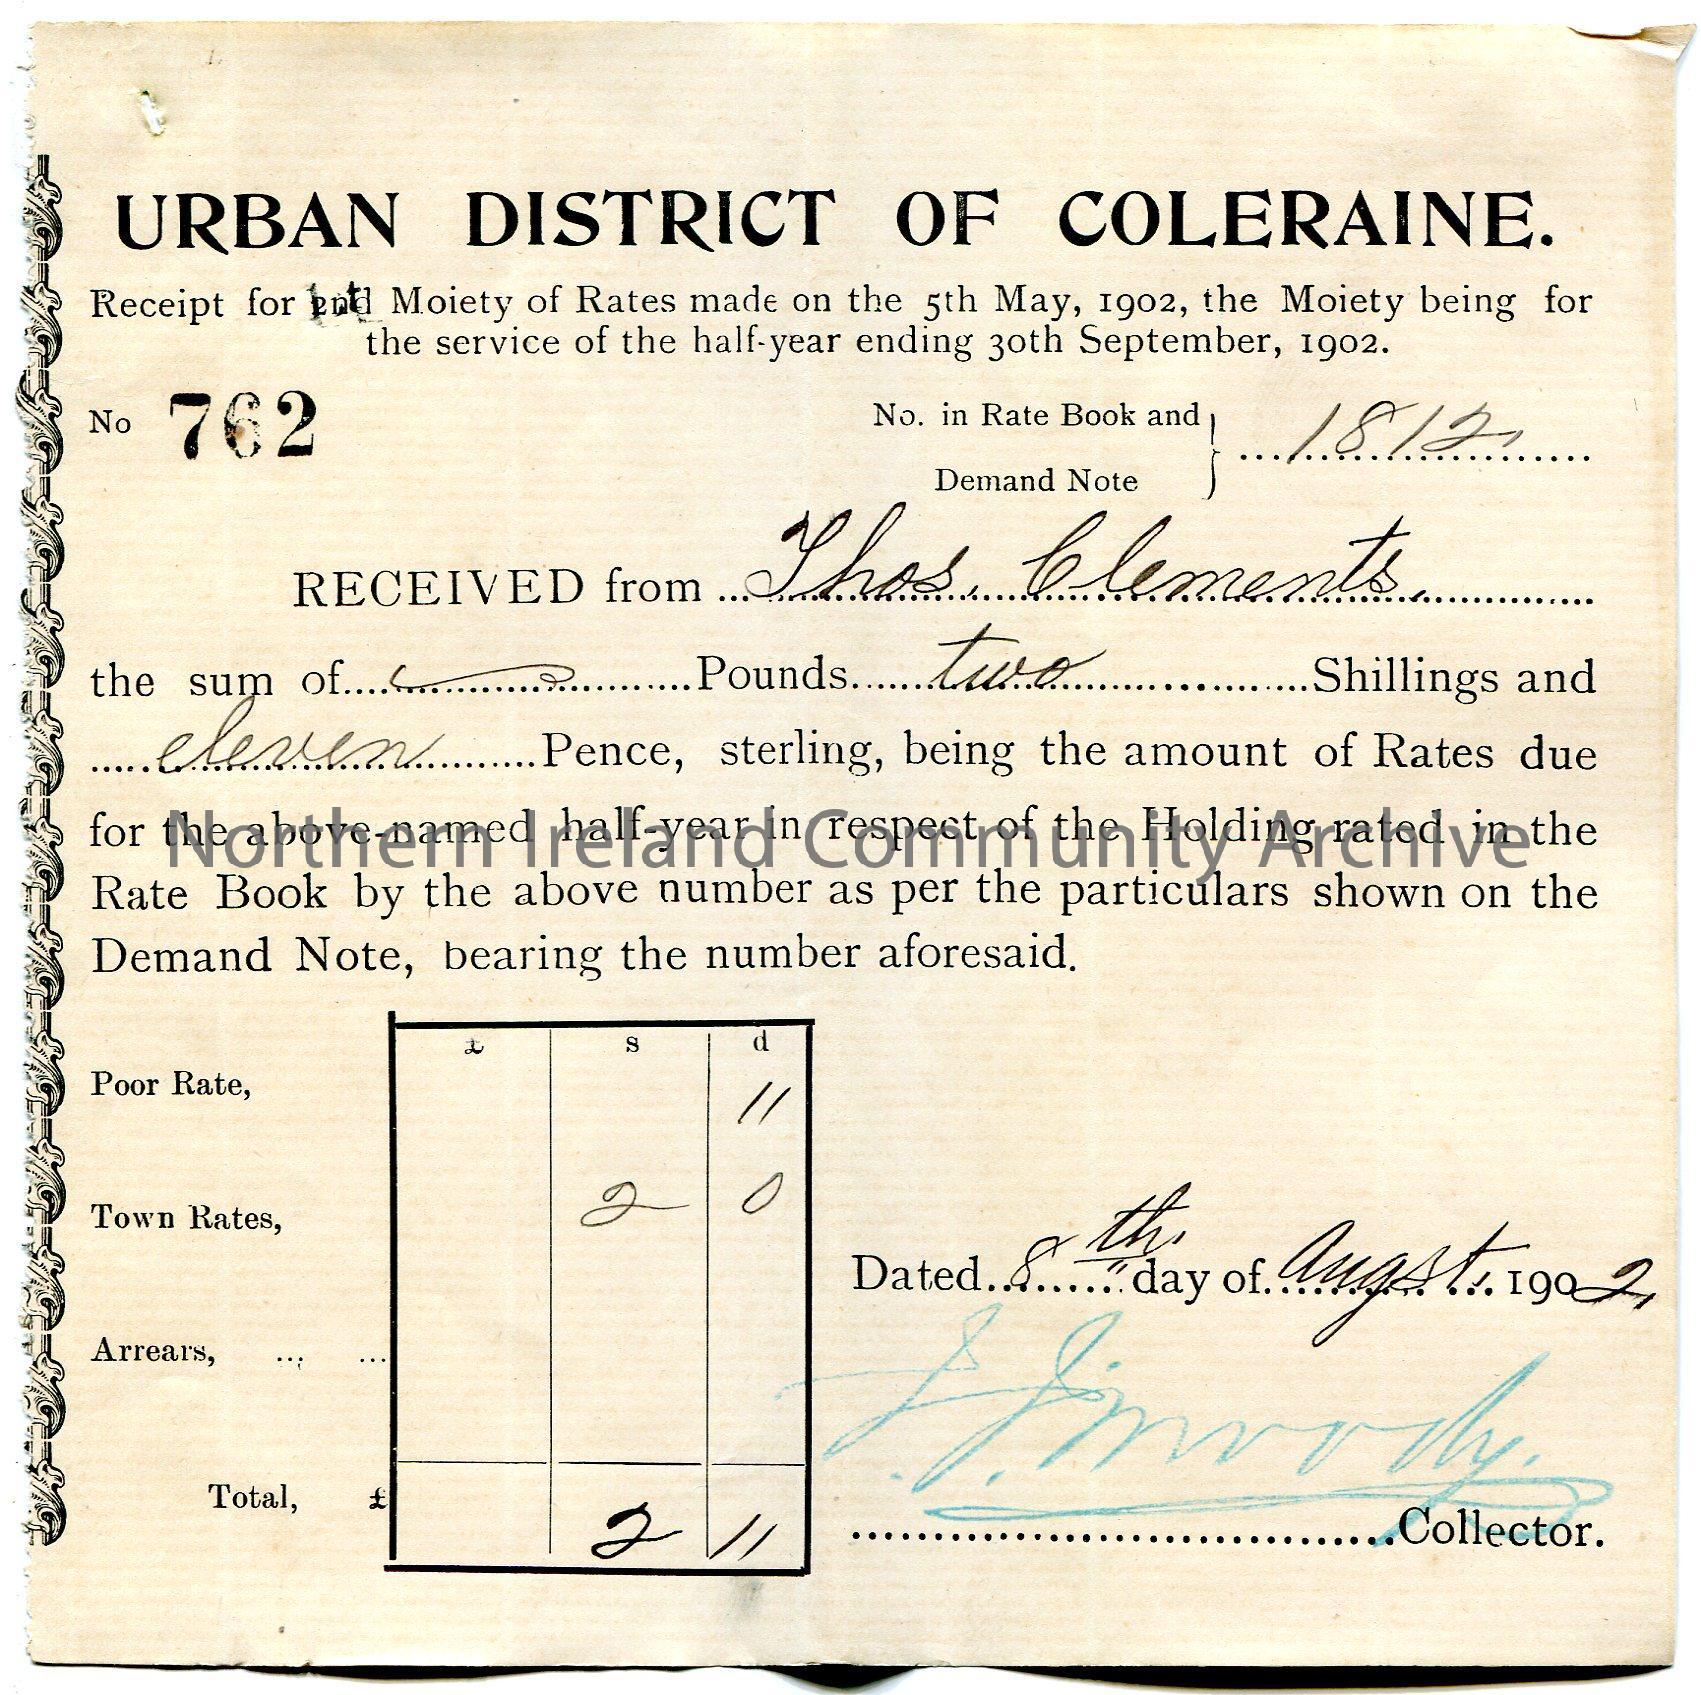 URBAN DISTRICT OF COLERAINE.
Receipt for 1st Moiety of Rates made on the 5th May, 1902, the Moiety being for
the service of the half-year ending 30th September, 1902.
No 762
No. in Rate Book and
Demand Note } 1812
RECEIVED from Thos. Clements.
the sum of Pounds two Shillings and
eleven Pence, sterling, being the amount of Rates due
for the above-named half-year in respect of the Holding rated in the
Northern Ireland Community Archive
Rate Book by the above number as per the particulars shown on the
Demand Note, bearing the number aforesaid.
£ s d
Poor Rate, 11
Town Rates, 2 0
Dated 8th day of Augst. 1902,
Arrears, ... ...
Total, £ 2 11
Moody.
Collector.